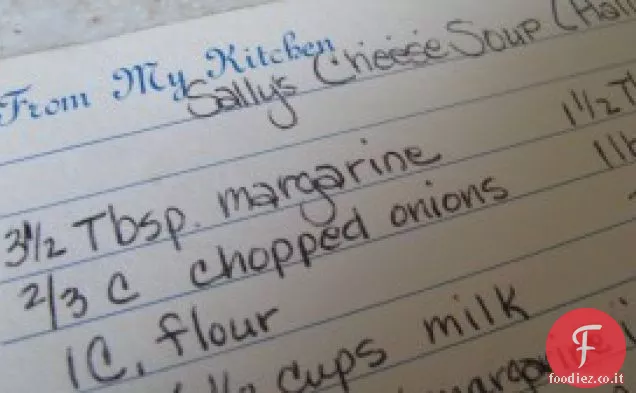 From My Kitchen
Sally's Cheese Soup (Hal
3 1/2 Tbsp. margarine 1 1/2 Tb
2/3 C chopped onions 1 lb
1 C. flour
1/2 cups milk
margarine i
F
foodiez.co.it